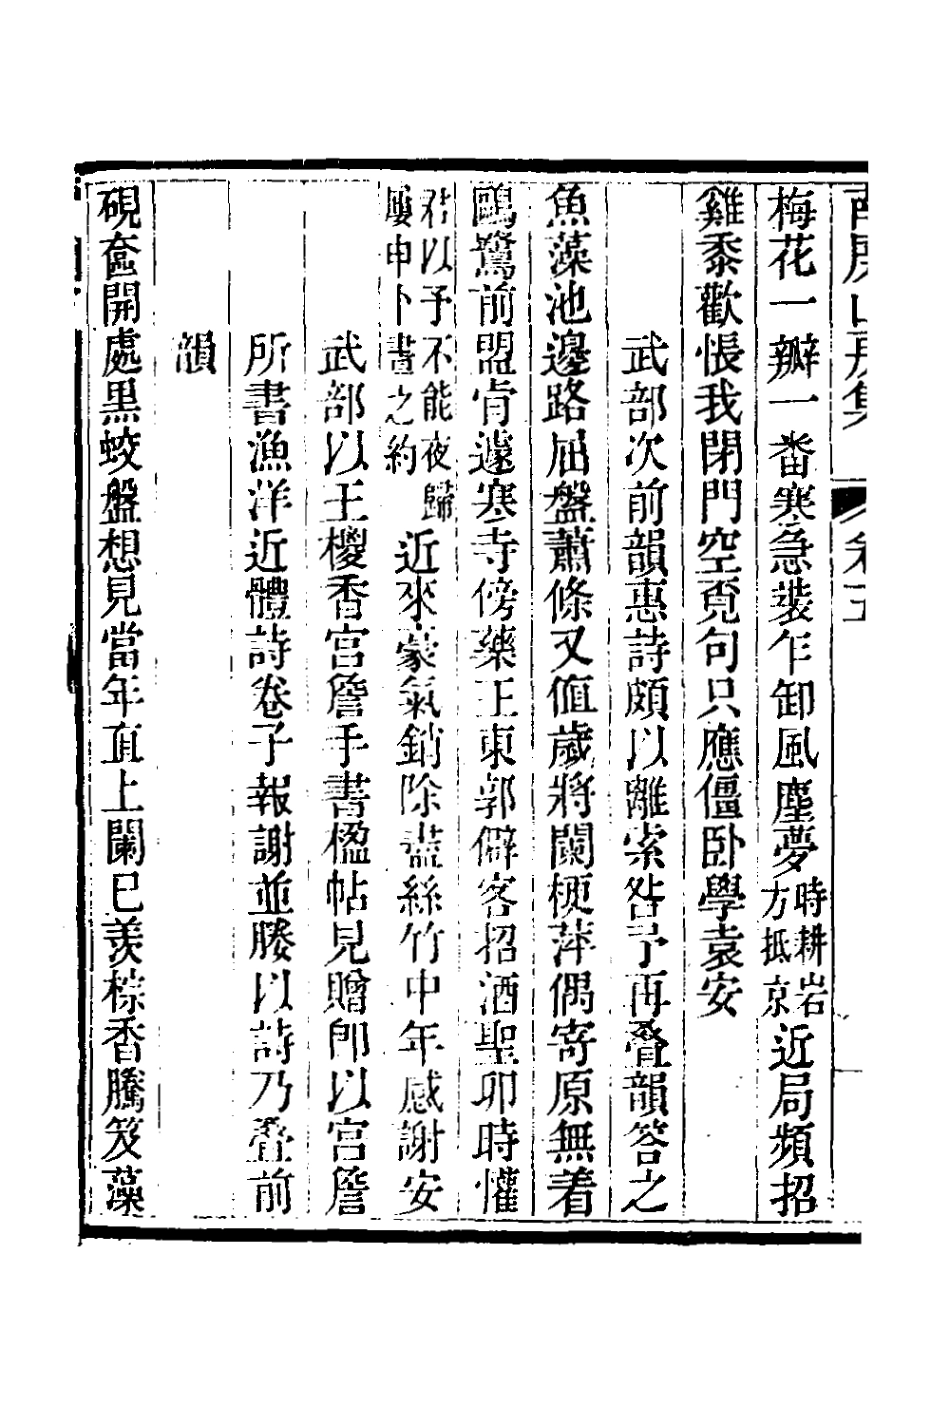 梅花一瓣一番寒急裝乍卸風塵夢時耕岩方抵京近局頻招
雞黍歡悵我閉門空覓句只應僵卧學袁安
武部次前韻惠詩頗以離索咎予再疊韻答之
魚藻池邊路屈盤蕭條又値歲將闌梗萍偶寄原無着
鷗鷺前盟肯遽寒寺傍藥王東郭僻客招酒聖卯時懽
君以予不能夜歸屢申卜晝之約近來豪氣銷除盡絲竹中年感謝安
武部以王櫻香宮詹手書楹帖見贈卽以宮詹
所書漁洋近體詩卷子報謝並賸以詩乃疊前
韻
硯奩開處黒蛟盤想見當年直上闌巳羨棕香騰笈藻